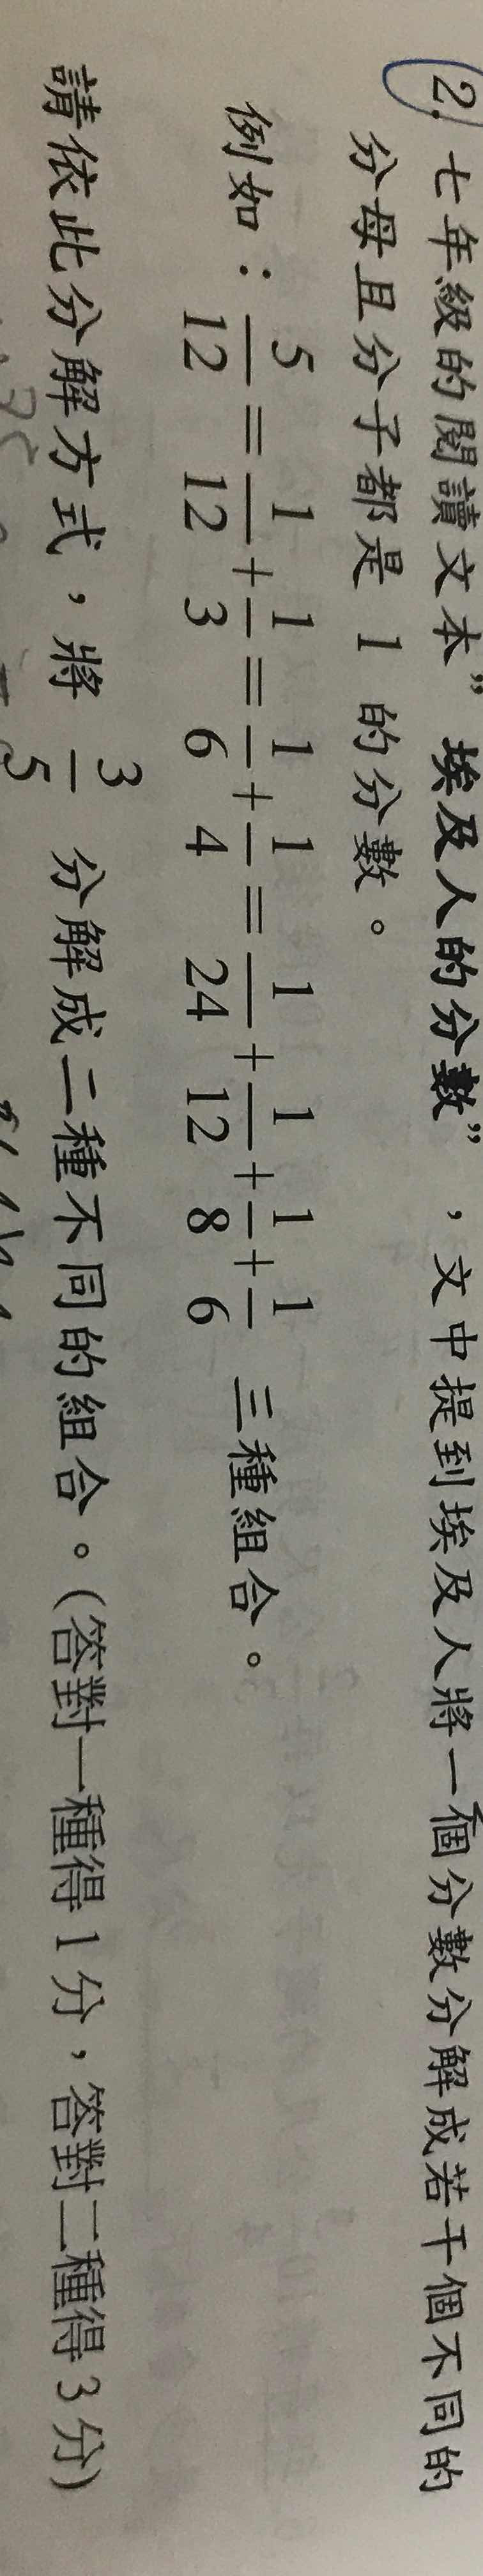 2. 七年級的閱讀文本”埃及人的分數”，文中提到埃及人將一個分數分解成若干個不同的
分母且分子都是 1 的分數。
例如：5/12 = 1/12 + 1/3 = 1/6 + 1/4 = 1/24 + 1/12 + 1/8 + 1/6 三種組合。
請依此分解方式，將 3/5 分解成二種不同的組合。(答對一種得 1 分，答對二種得 3 分)